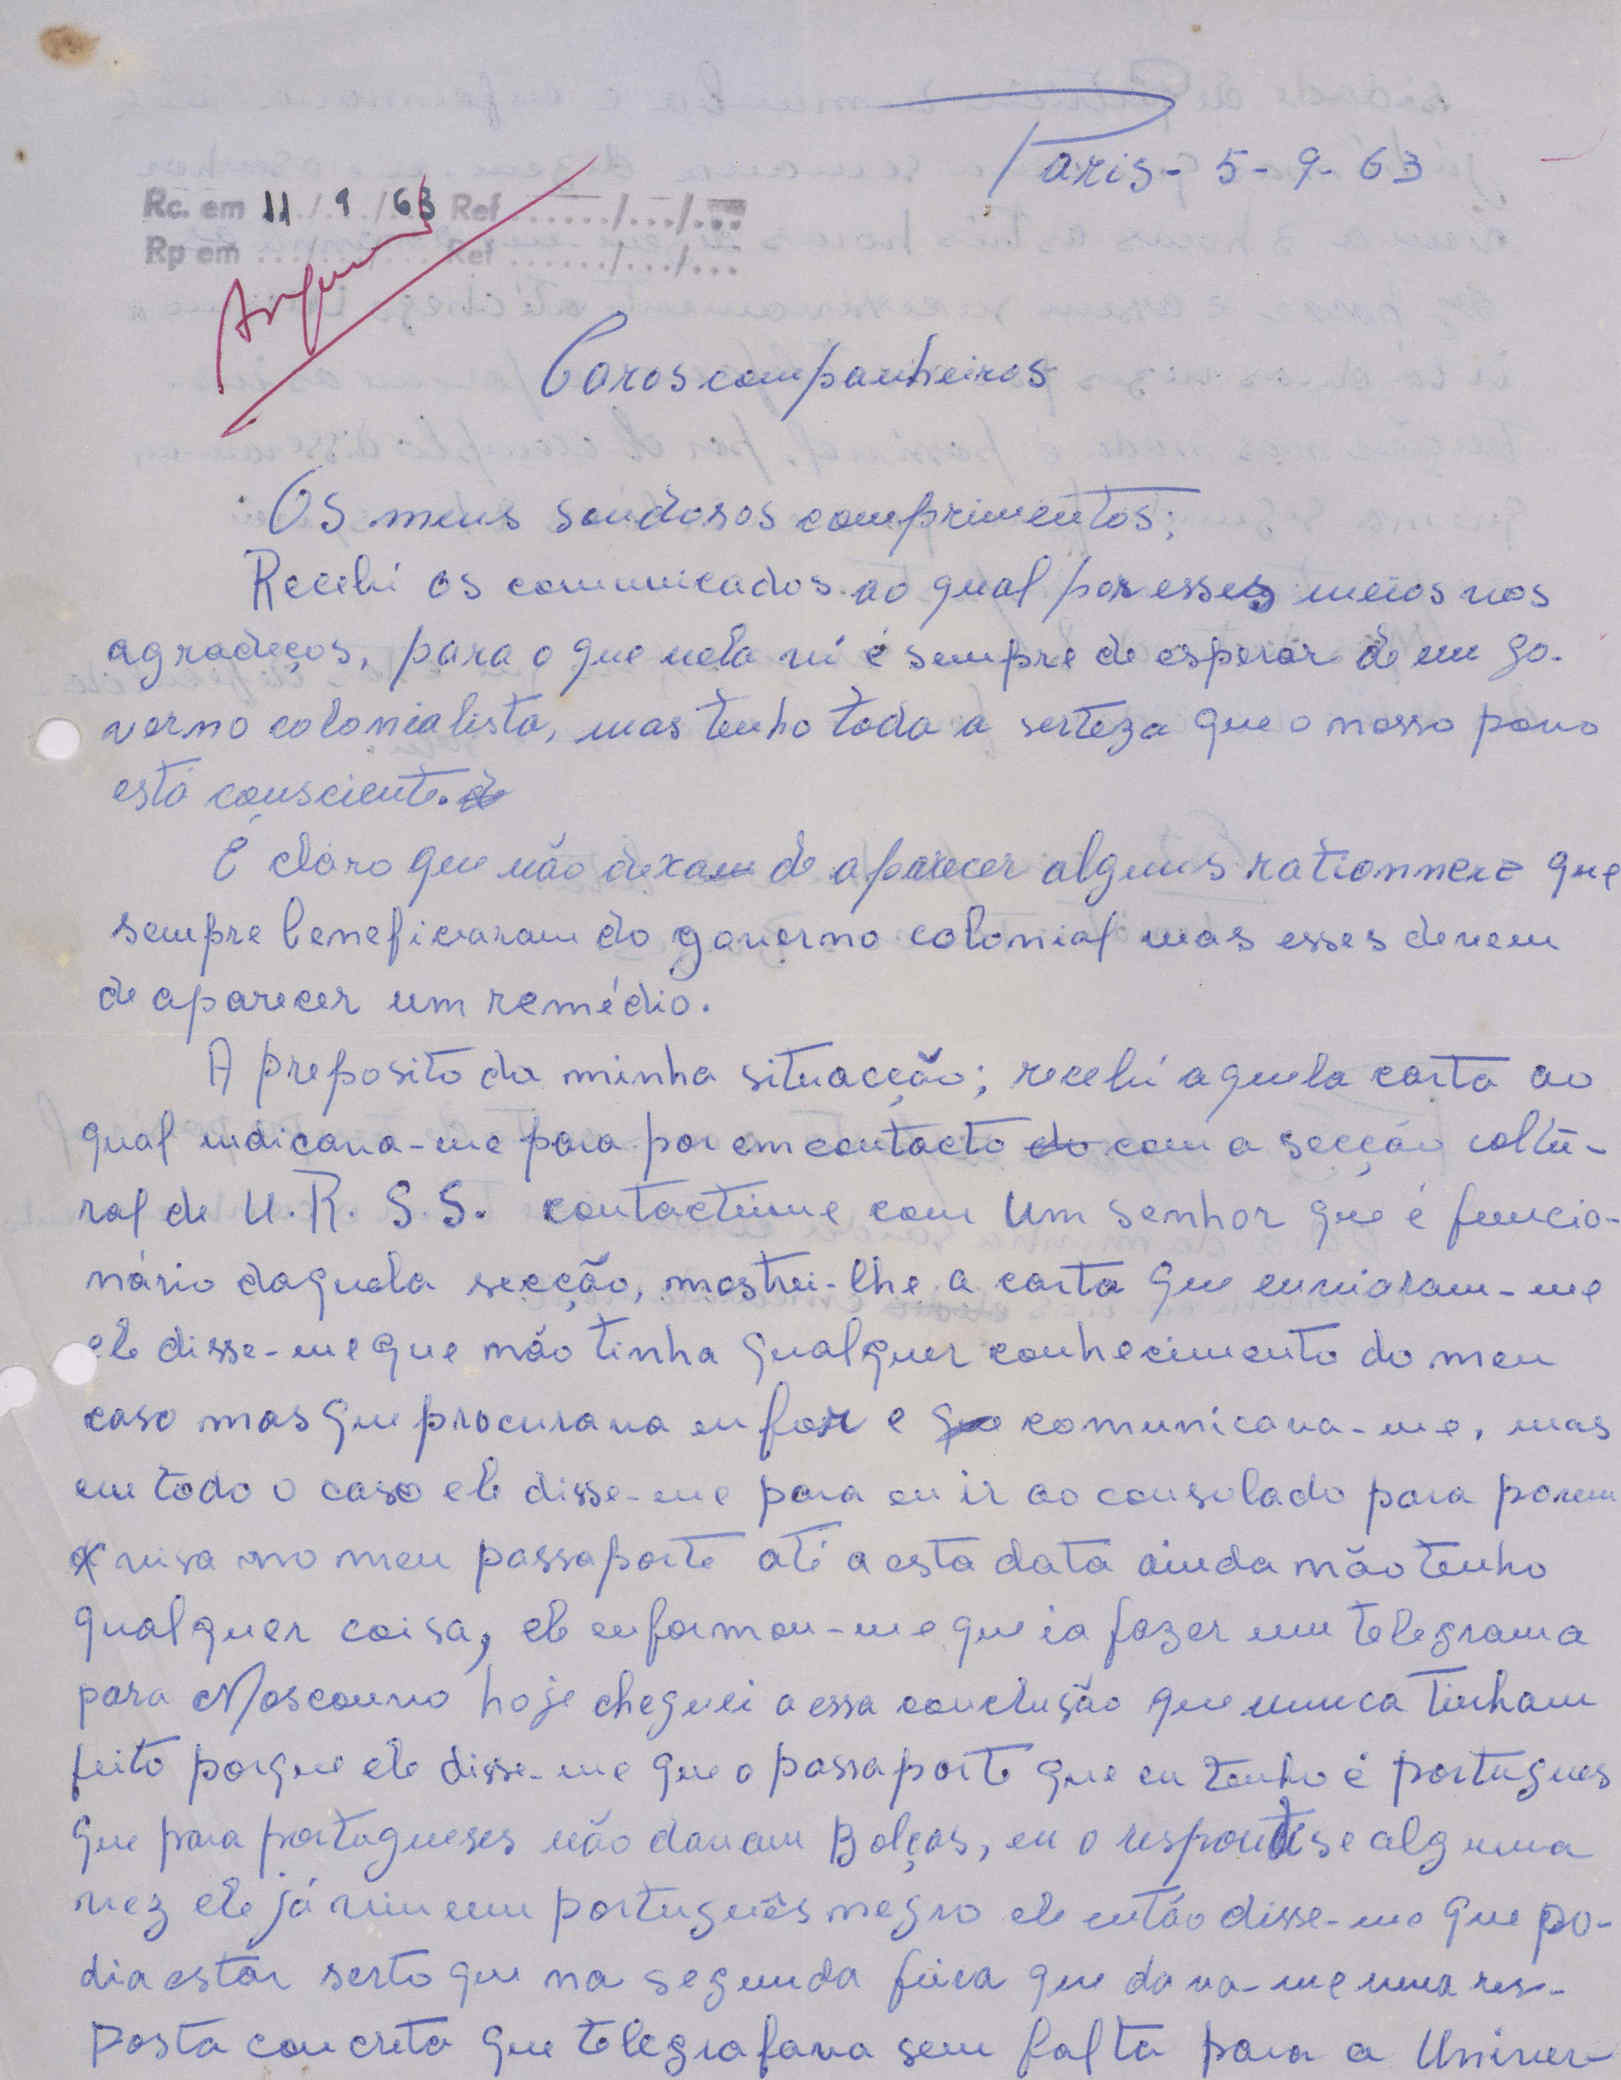 Paris - 5 - 9 - 63
Rc. em 11/9/63 Ref ....../.../...
Rp em .../.../... Ref ....../.../...
Caros companheiros
Os meus saudosos comprimentos;
Recebi os comunicados ao qual por esses meios nos
agradeços, para o que nela vi é sempre de esperar de um go-
verno colonialista, mas tenho toda a serteza que o nosso povo
está consciente.
É claro que não dexam de aparecer alguns que
sempre beneficiaram do governo colonial mas esses devem
de aparecer um remédio.
A preposito da minha situacção; recebi aquela carta ao
qual indicava-me para por em contacto com a secção coltu-
ral de U.R.S.S. contacteime com um senhor que é funcio-
nário daquela secção, mostrei-lhe a carta que enviaram-me
ele disse-me que não tinha qualquer conhecimento do meu
caso mas que procurava enfor e comunicava-me, mas
em todo o caso ele disse-me para eu ir ao consulado para porem
visa no meu passaporte até a esta data ainda não tenho
qualquer coisa, ele enformou-me que ia fazer um telegrama
para Moscouvo hoje cheguei a essa conclusão que nunca tinham
feito porque ele disse-me que o passaporte que eu tenho é portugues
que para portugueses não davam Bolças, eu o respondi se alguma
vez ele já viu um português negro ele então disse-me que po-
dia estar serto que na segunda feira que dava-me uma res-
posta concreta que telegrafava sem falta para a Univer-